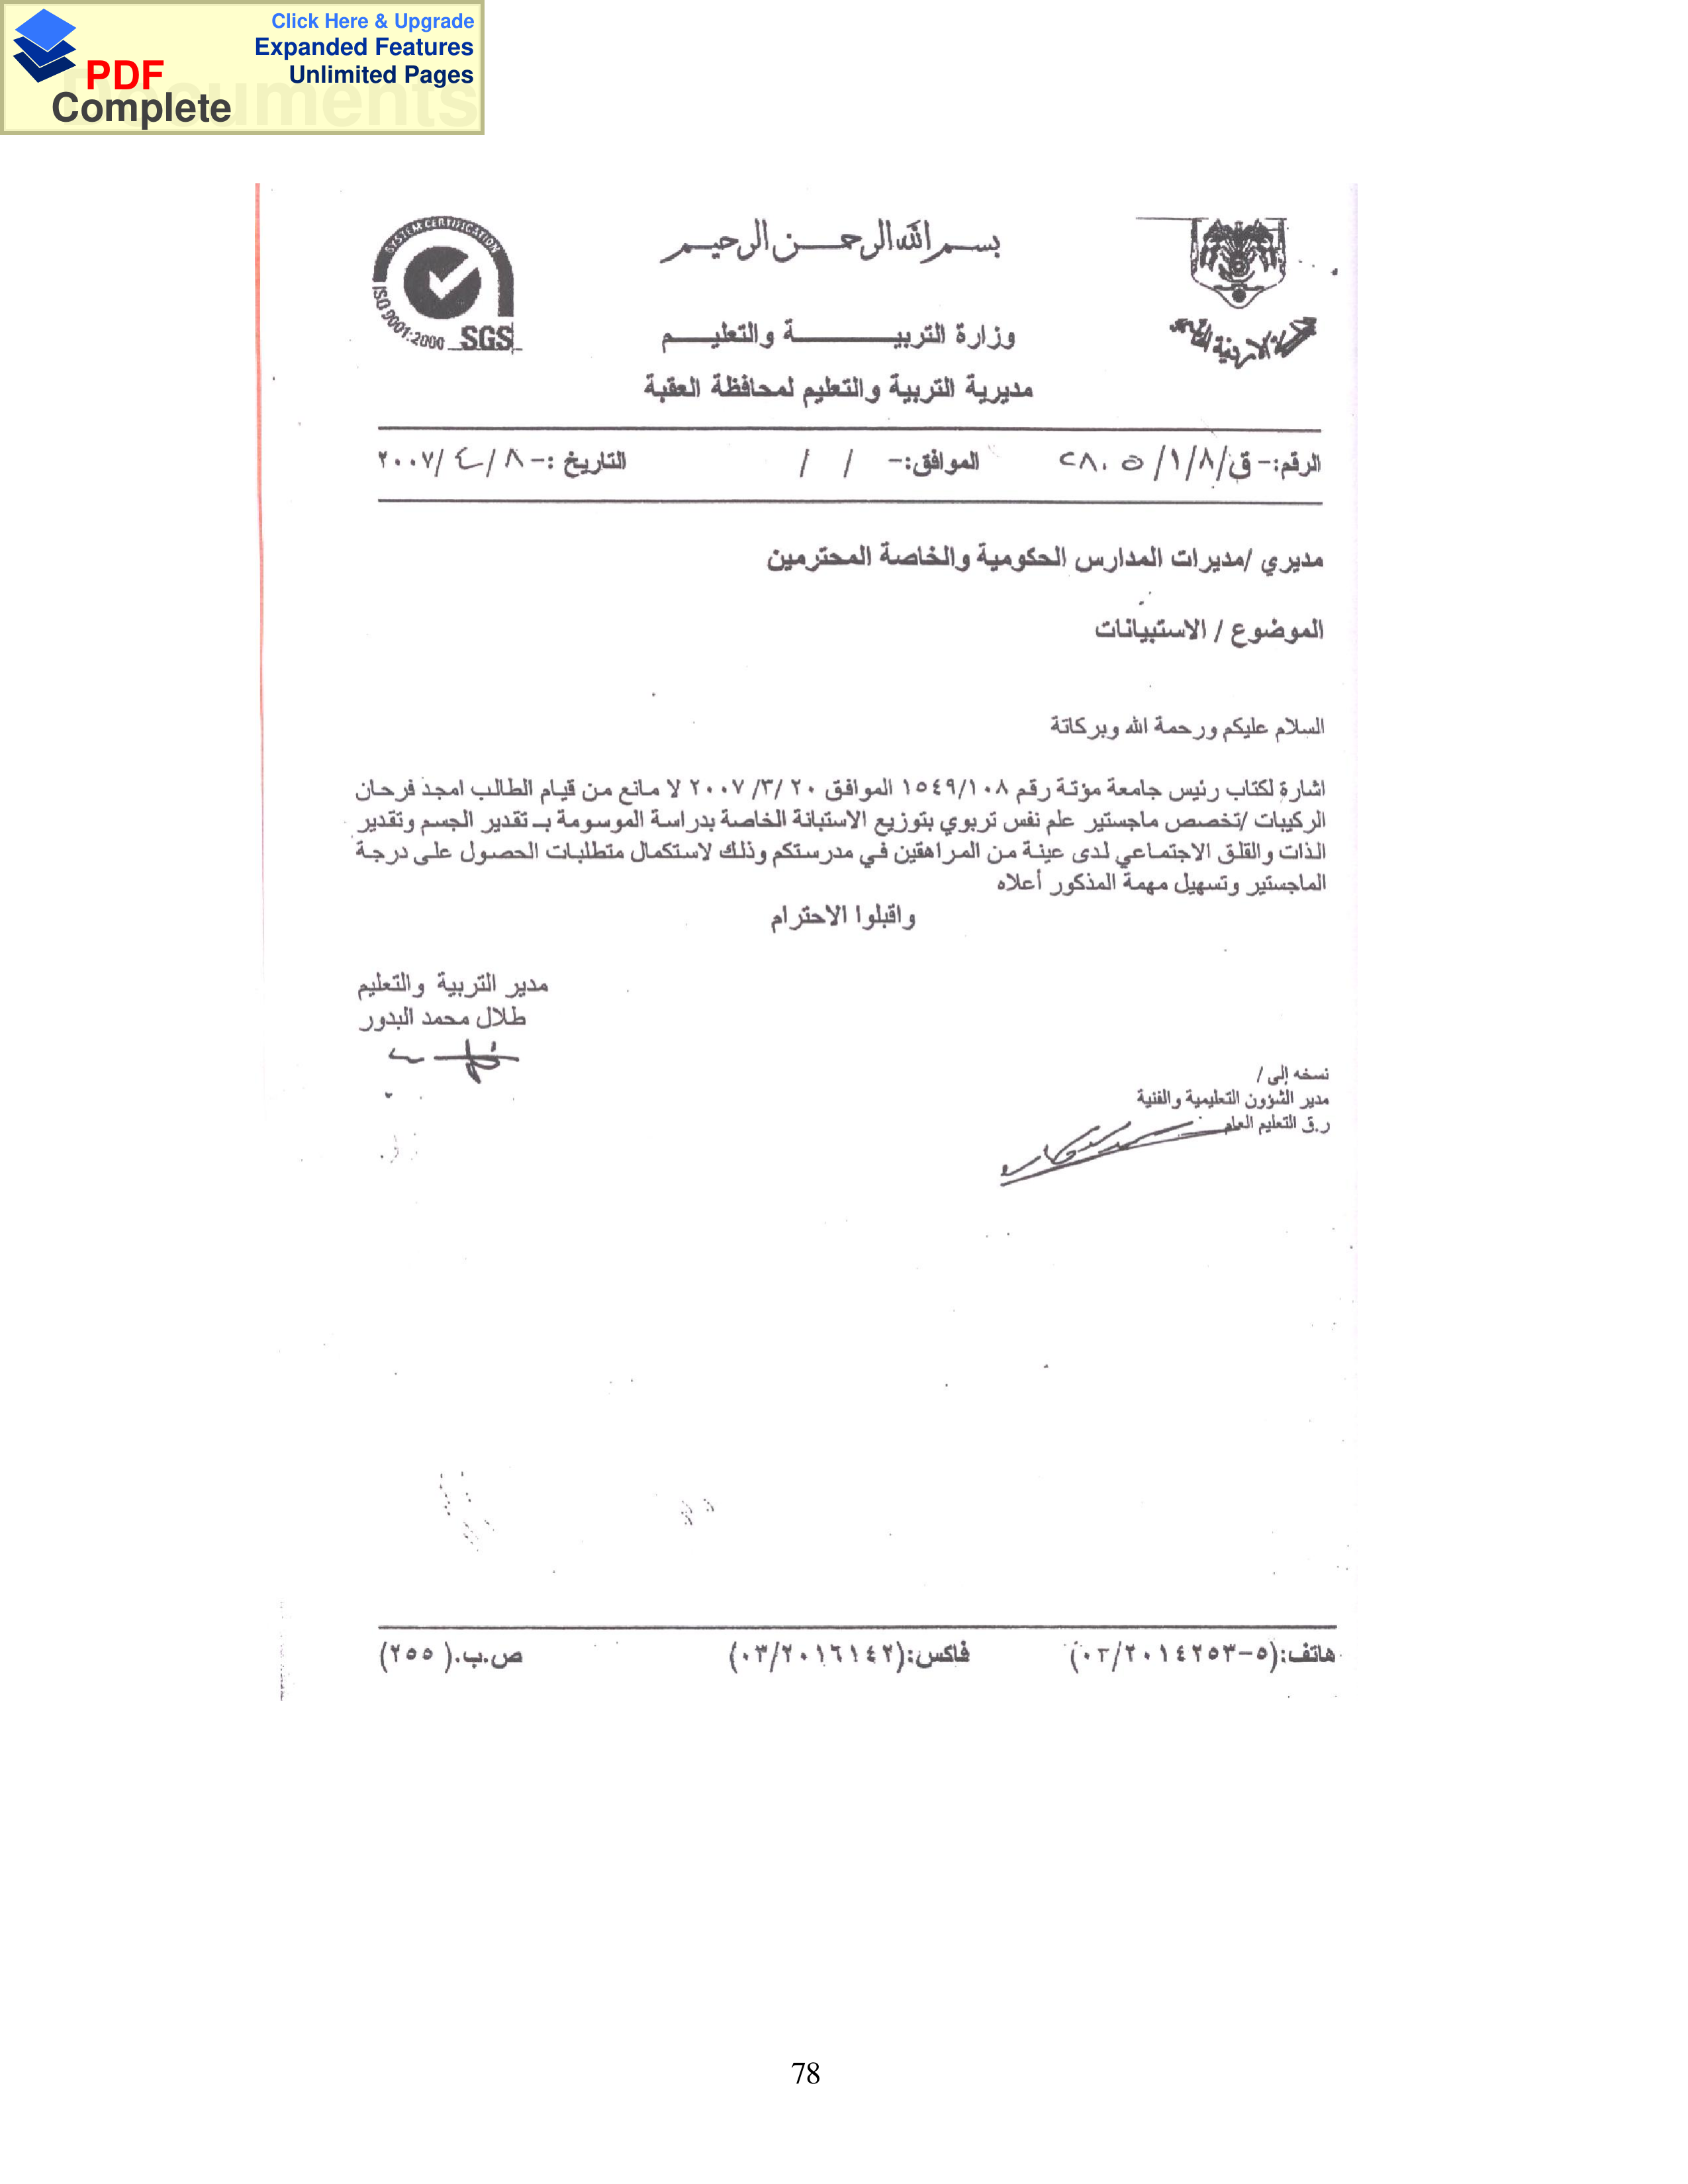 Click Here & Upgrade
Expanded Features
Unlimited Pages
PDF
Complete
Documents
SYSTEM CERTIFICATION
ISO 9001:2000
SGS
بسم الله الرحمن الرحيم
وزارة التربيــــــة والتعليــم
مديرية التربية والتعليم لمحافظة العقبة
الرقم:- ق/٨/١/ ٢٨٠٥ الموافق:- / / التاريخ :- ٨/ ٤/ ٢٠٠٧
مديري /مديرات المدارس الحكومية والخاصة المحترمين
الموضوع / الاستبيانات
السلام عليكم ورحمة الله وبركاتة
اشارة لكتاب رئيس جامعة مؤتة رقم ١٥٤٩/١٠٨ الموافق ٢٠ /٣/ ٢٠٠٧ لا مانع من قيام الطالب امجد فرحان
الركيبات /تخصص ماجستير علم نفس تربوي بتوزيع الاستبانة الخاصة بدراسة الموسومة بـ تقدير الجسم وتقدير
الذات والقلق الاجتماعي لدى عينة من المراهقين في مدرستكم وذلك لاستكمال متطلبات الحصول على درجة
الماجستير وتسهيل مهمة المذكور أعلاه
واقبلوا الاحترام
مدير التربية والتعليم
طلال محمد البدور
نسخه إلى /
مدير الشؤون التعليمية والفنية
ر.ق التعليم العام
هاتف:(٥-٠٣/٢٠١٤٢٥٣) فاكس:(٠٣/٢٠١٦١٤٢) ص.ب.( ٢٥٥)
78